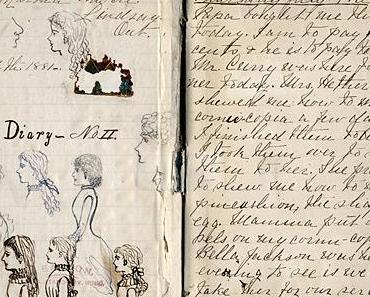 Lindsay
Ont.
1881.
Diary - No. II.
Papa bought me
today. I am to pay
cents, & he is to pay
Mr Curry was here
ner today. Mrs. Hether
shewed me how to m
cornucopia a few d
I finished them
I took them over to
them to her. She pr
to shew me how to m
pincushion, the sha
egg. Mamma put
sels on my cornu-cop
Bella Jackson was h
evening to see if we
take her for our ser